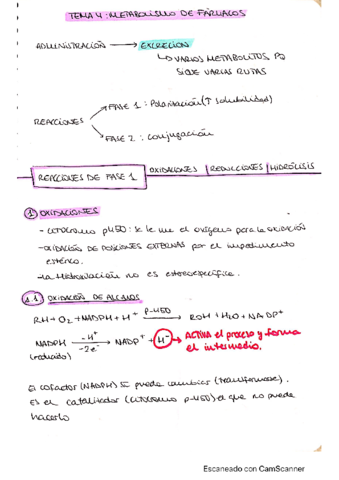 TEMA 4: METABOLISMO DE FÁRMACOS
ADMINISTRACIÓN → EXCRECIÓN
↳ VARIOS METABOLITOS PQ
SIGUE VARIAS RUTAS
FASE 1: Polarización (↑ solubilidad)
REACCIONES
FASE 2: conjugación
OXIDACIONES | REDUCCIONES | HIDRÓLISIS
REACCIONES DE FASE 1
1 OXIDACIONES
- CITOCROMO p450: se le une el oxígeno para la oxidación
- OXIDACIÓN DE POSICIONES EXTERNAS por el impedimento
estérico.
- La Hidroxilación no es estereoespecífica.
1.1 OXIDACIÓN DE ALCANOS
RH + O2 + NADPH + H+ P-450 → ROH + H2O + NADP+
NADPH -H+ -2e- → NADP+ + H- → ACTIVA el proceso y forma
(reducido) el intermedio.
El cofactor (NADPH) SÍ puede cambiar (transformarse).
Es el catalizador (CITOCROMO p-450) el que no puede
hacerlo
Escaneado con CamScanner